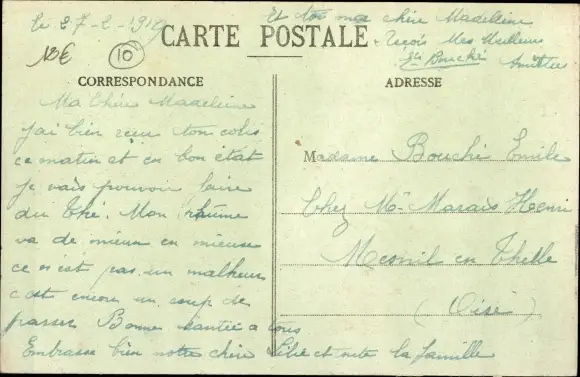 le 27-2-1912
Et toi ma chère Madeleine
Reçois Mes Meilleurs
Amitiés
Ele Bouché
18€
10
CARTE POSTALE
CORRESPONDANCE
ADRESSE
Ma Chère Madeleine
j'ai bien reçu ton colis
ce matin et en bon état
je vais pouvoir faire
du thé. Mon rhume
va de mieux en mieux
ce n'est pas un malheur
c'est encore un coup de
passer Bonne santée a tous
Embrasse bien notre chère et toute la famille
Madame Bouché Emile
Chez Mr Marais Henri
Mesnil en Thelle
(Oise)